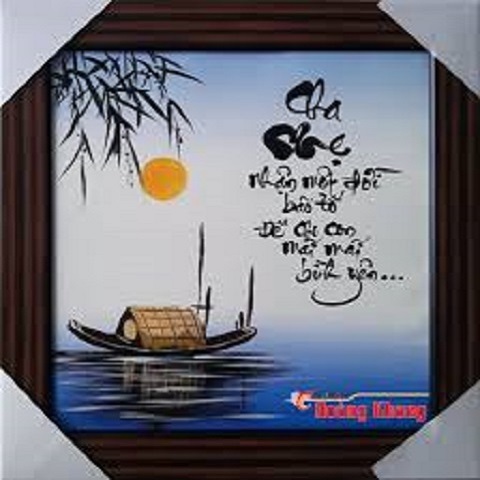 Cha
Mẹ
nhận một đời
bão tố
Để cho con
mãi mãi
bình yên...
Hoàng Khang